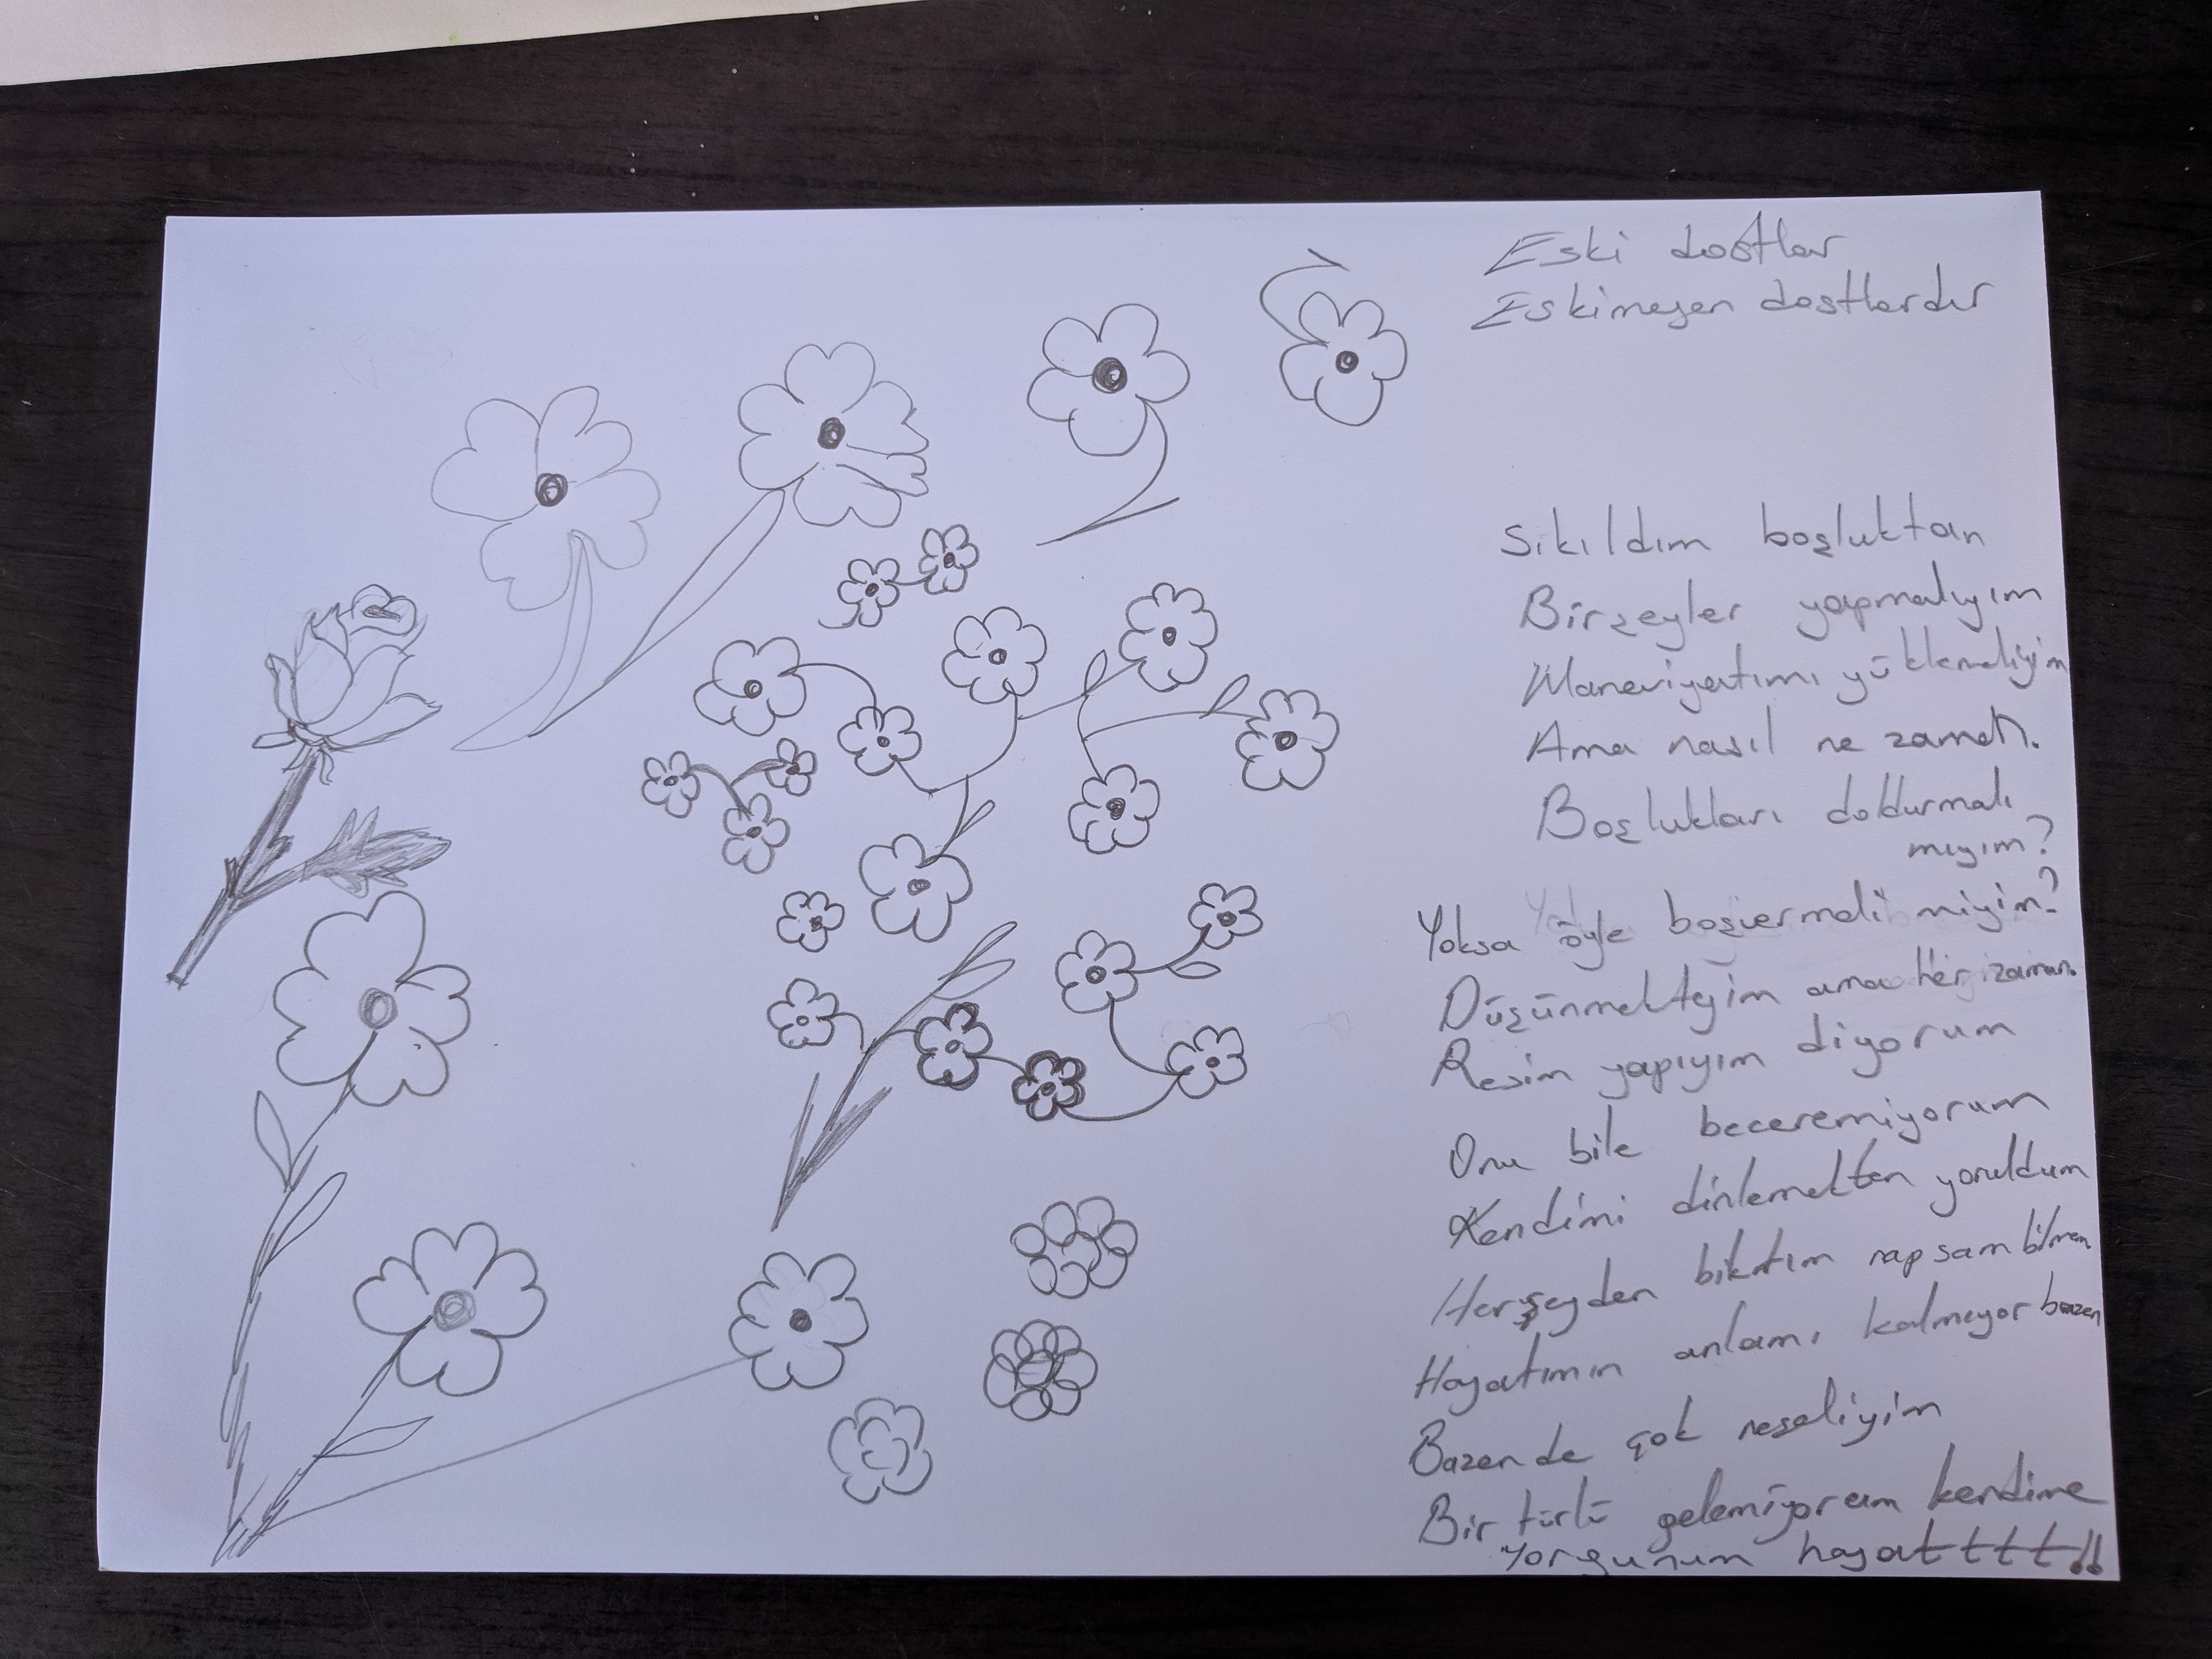 Eski dostlar
Eskimeyen dostlardır
Sıkıldım boşluktan
Birşeyler yapmalıyım
Maneviyatımı yüklemeliyim
Ama nasıl ne zaman.
Boşlukları doldurmalı
mıyım?
Yoksa öyle boşvermeli miyim?
Düşünmekteyim ama her zaman.
Resim yapıyım diyorum
Onu bile beceremiyorum
Kendimi dinlemekten yoruldum
Herşeyden bıktım napsam bilmem
Hayatımın anlamı kalmıyor bazen
Bazende çok neşeliyim
Bir türlü gelemiyorum kendime
Yorgunum hayatttt!!